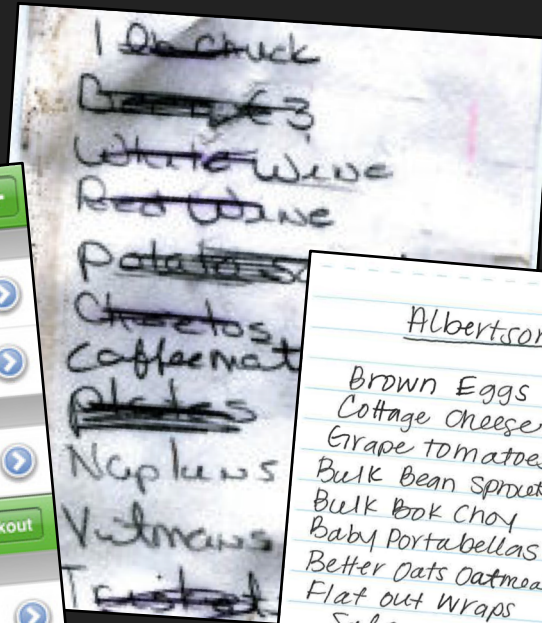 1 lb chuck
White Wine
Red Wine
Potato
Cheetos
Caffeemat
Plates
Napkins
kout
Albertson
Brown Eggs
Cottage Cheese
Grape tomatoes
Bulk Bean Sprout
Bulk Bok Choy
Baby Portabellas
Better Oats Oatmea
Flat out Wraps